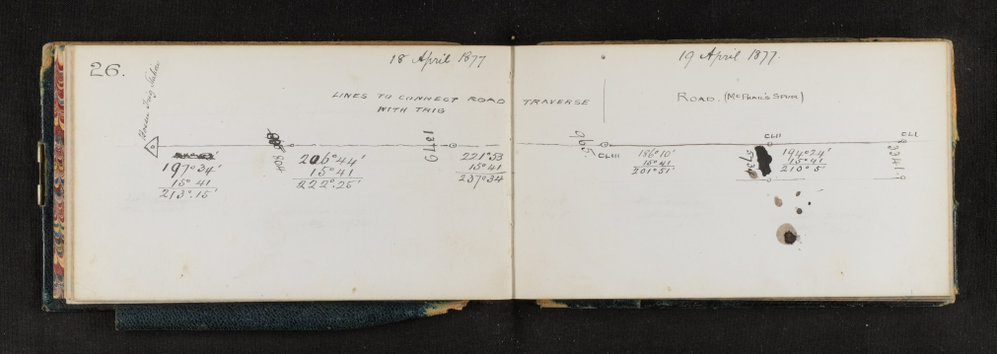 26.
18 April 1877
LINES TO CONNECT ROAD TRAVERSE
WITH TRIG
197°34'
15°41
213°.15'
408
206°44'
15°41
222°.25'
1379
221°53
15°41
237°34
19 April 1877.
ROAD. (McPHAIL'S SPUR)
CLIII
186°10'
15°41
201°51'
CLII
194°24'
15°41
210°5'
CLI